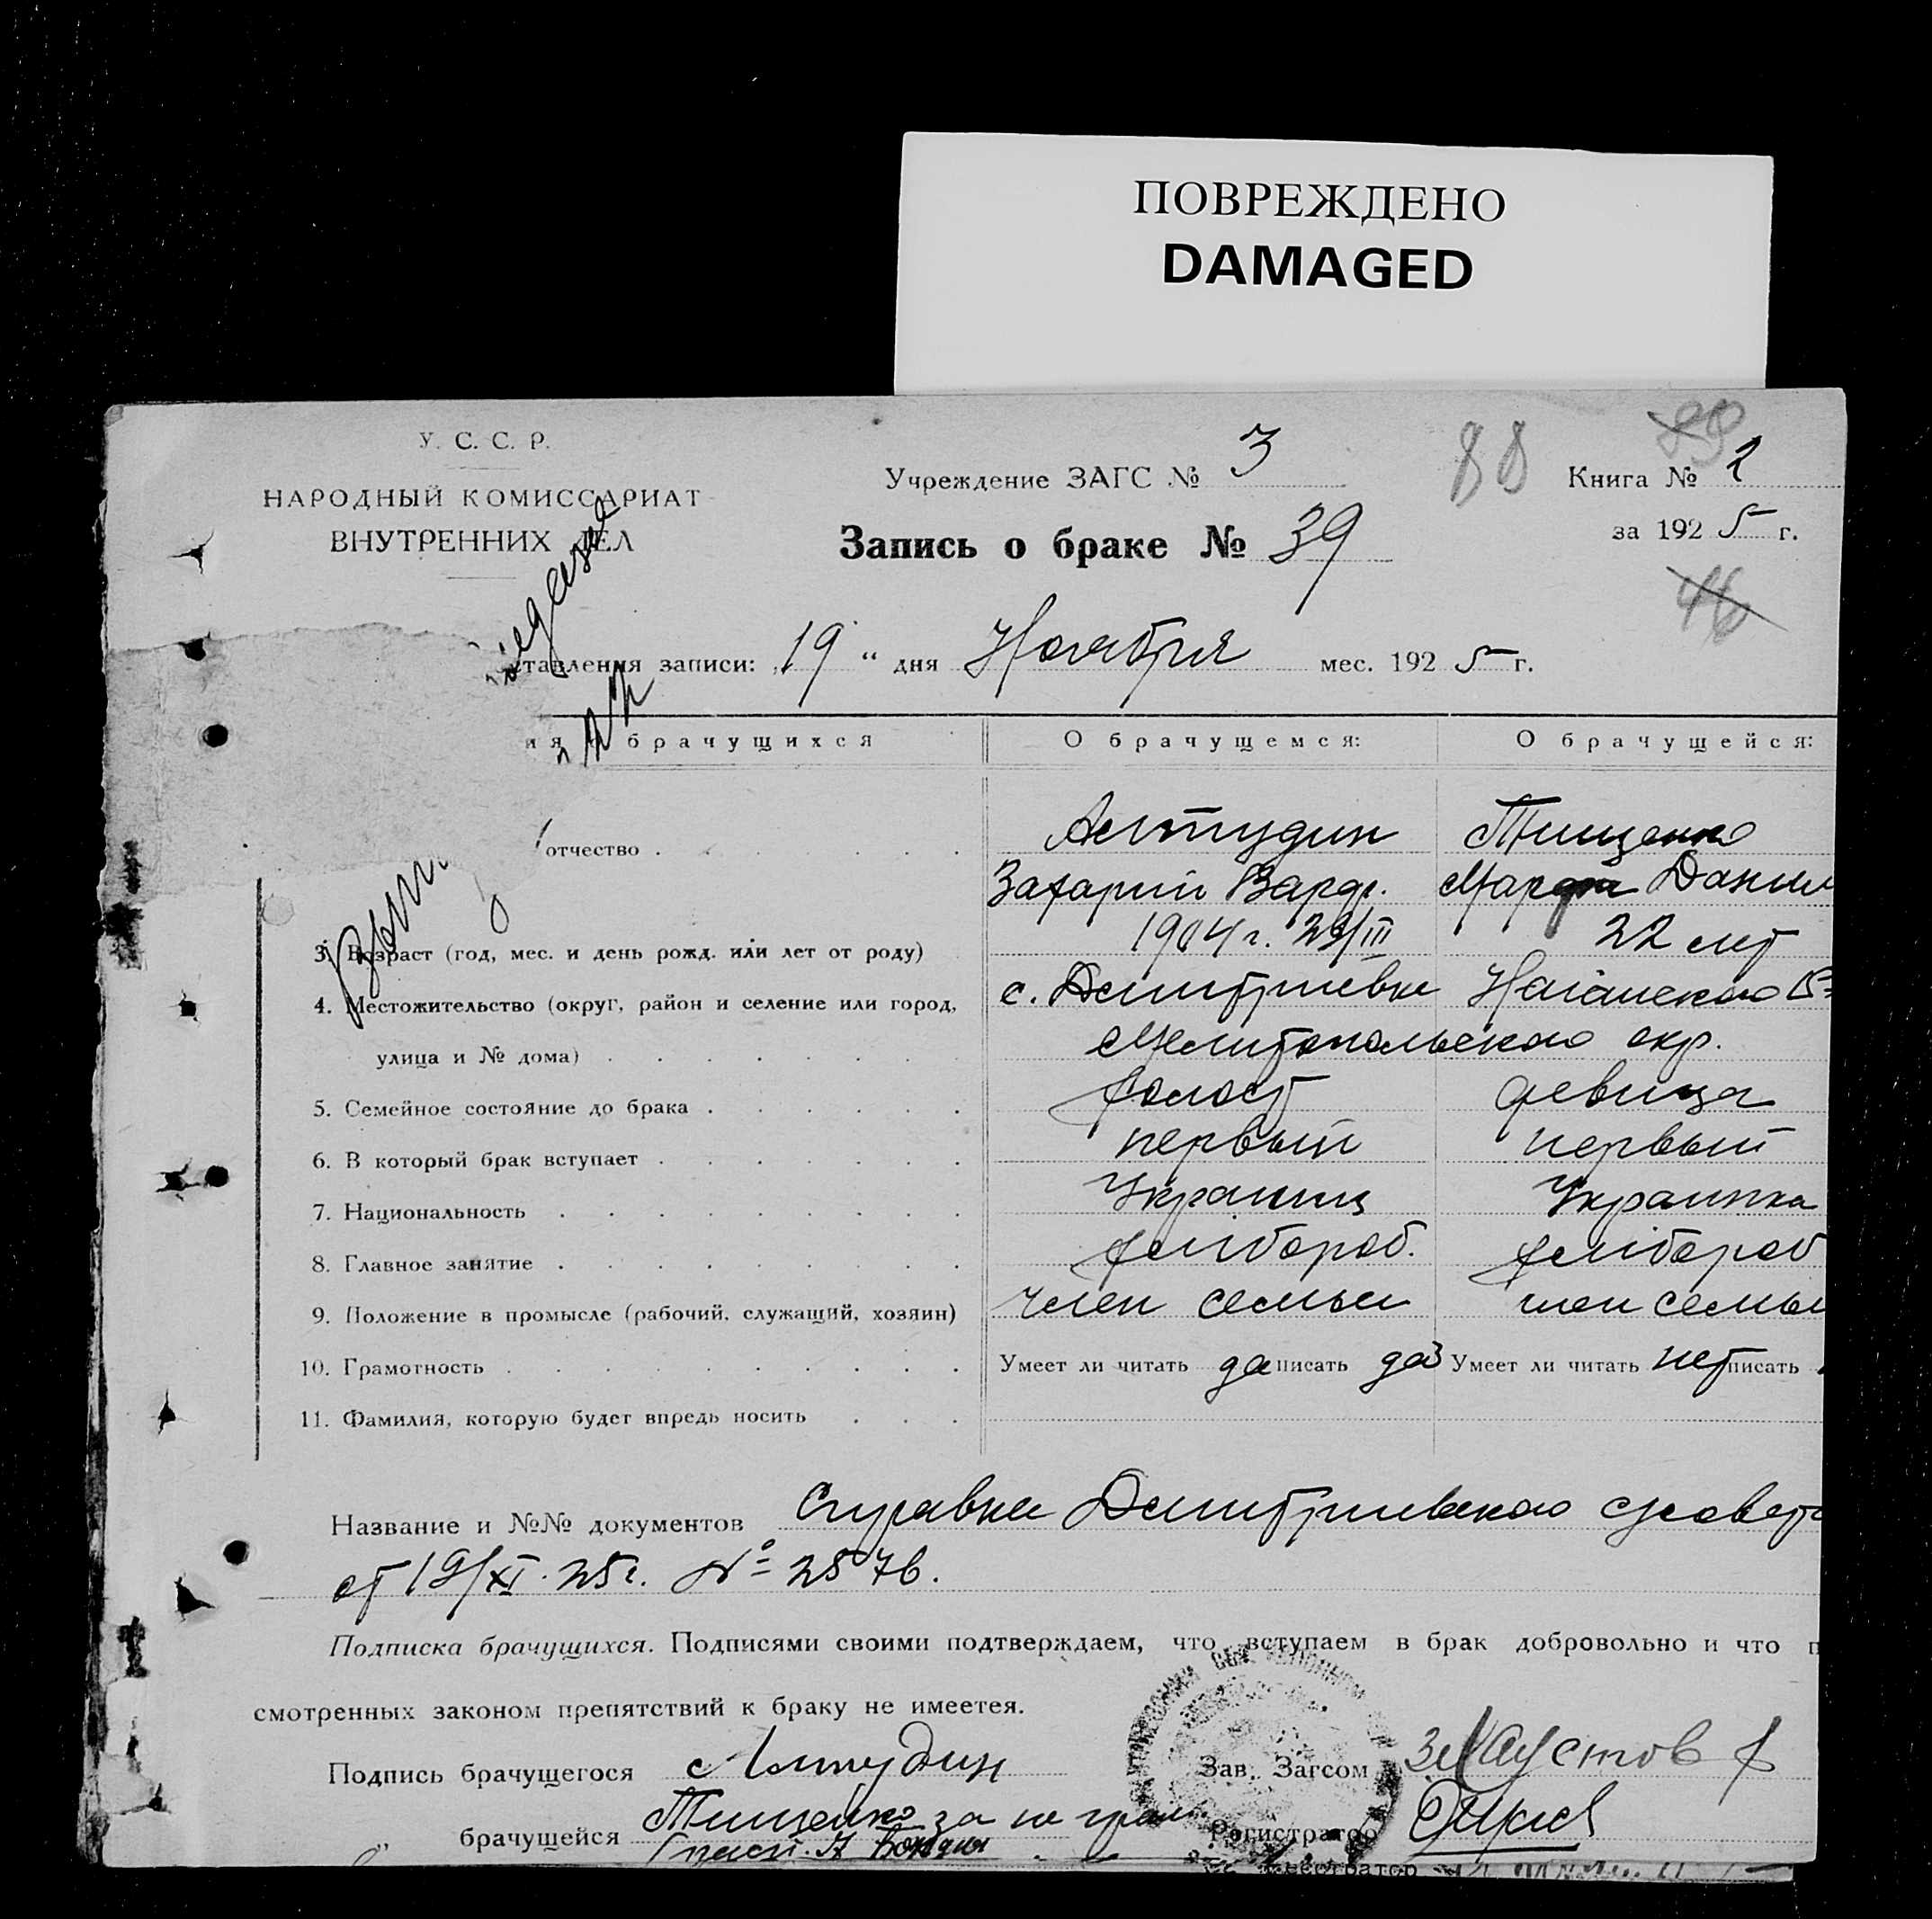 ПОВРЕЖДЕНО
DAMAGED
У. С. С. Р.
НАРОДНЫЙ КОМИССАРИАТ
ВНУТРЕННИХ ДЕЛ
Учреждение ЗАГС № 3
88
89
Книга № 2
за 1925 г.
Запись о браке № 39
46
ставления записи: „19“ дня Ноября мес. 1925 г.
ия о брачущихся
О брачущемся:
О брачущейся:
отчество
Алтудин
Тищенко
Захарий Варф.
Марфа Данил
3. Возраст (год, мес. и день рожд. или лет от роду) 1904 г. 29/III 22 лет
4. Местожительство (округ, район и селение или город, с. Дмитриевка Ногайского
улица и № дома) Мелитопольского окр.
5. Семейное состояние до брака холост девица
6. В который брак вступает первый первый
7. Национальность Украинц Украинка
8. Главное занятие хлибороб. хлибороб
9. Положение в промысле (рабочий, служащий, хозяин) член семьи член семьи
10. Грамотность Умеет ли читать да писать да Умеет ли читать нет писать
11. Фамилия, которую будет впредь носить
Название и №№ документов Справка Дмитриевского
от 19/XI. 25 г. № 2576.
Подписка брачущихся. Подписями своими подтверждаем, что вступаем в брак добровольно и что п
смотренных законом препятствий к браку не имеетея.
Подпись брачущегося Алтудин Зав. Загсом
„ брачущейся Тищенко за не грам Регистратор